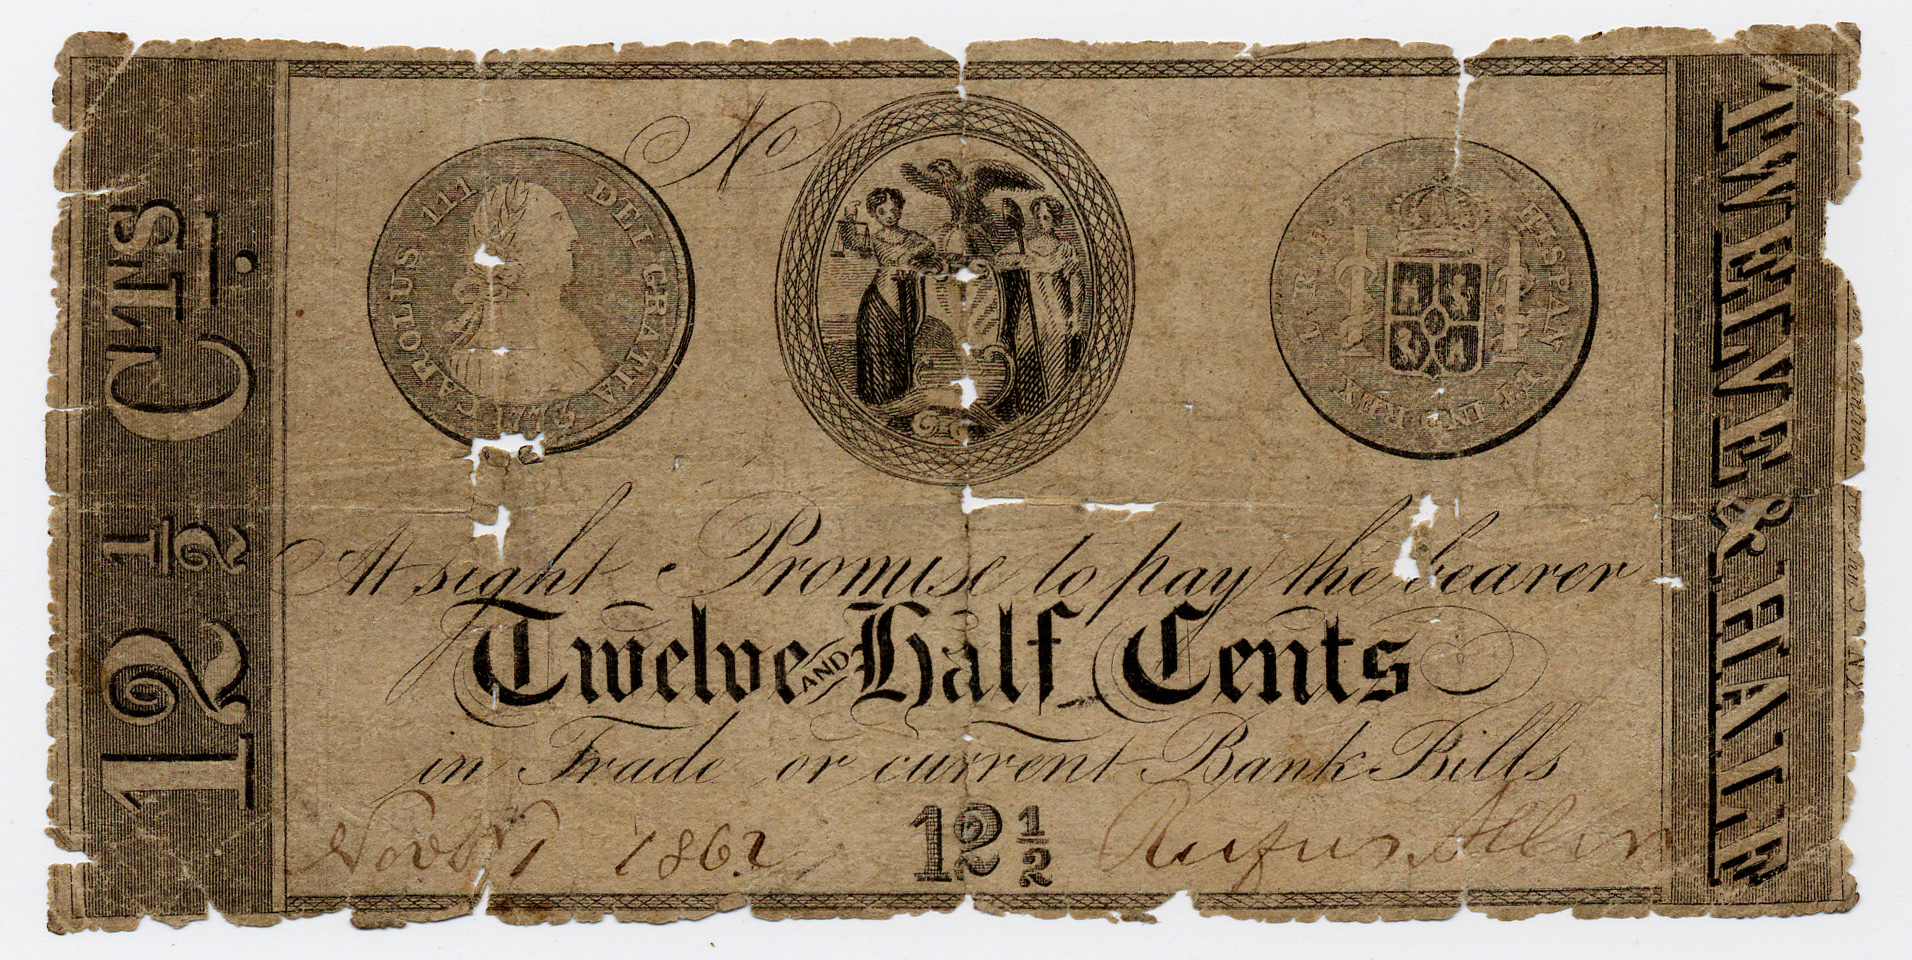 12 1/2 CTS.
No
CAROLUS III DEI GRATIA 1773
HISPAN ET IND REX
At sight Promise to pay the bearer
Twelve AND Half Cents
in Trade or current Bank Bills
1862
12 1/2
Rufus Allen
TWELVE & HALF